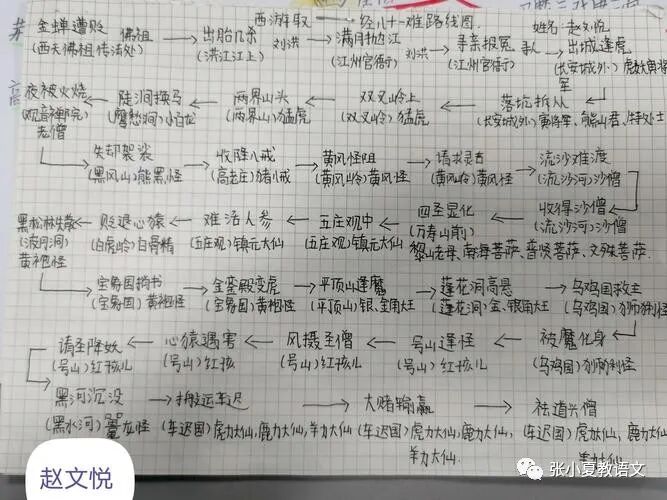 西游取经八十一难路线图 姓名:赵文悦
金蝉遭贬 佛祖 → 出胎几杀 刘洪 → 满月抛江 刘洪 → 寻亲报冤 → 出城逢虎
(西天佛祖传法处) (洪江江上) (江州官衙) (江州官衙) (长安城外)
夜被火烧 ← 陡涧换马 ← 两界山头 ← 双叉岭上 ← 落坑折从
(观音禅院) (鹰愁涧)小白龙 (两界山)猛虎 (双叉岭)猛虎 (长安城外)寅将军、熊山君、特处士
老僧
失却袈裟 → 收降八戒 → 黄风怪阻 → 请求灵吉 → 流沙难渡
(黑风山)熊黑怪 (高老庄)猪八戒 (黄风岭)黄风怪 (黄风岭)黄风怪 (流沙河)沙僧
黑松林失散 ← 贬退心猿 ← 难活人参 ← 五庄观中 ← 四圣显化 ← 收得沙僧
(波月洞) (白虎岭)白骨精 (五庄观)镇元大仙 (五庄观)镇元大仙 (万寿山前) (流沙河)沙僧
黄袍怪 黎山老母、南海菩萨、普贤菩萨、文殊菩萨.
宝象国捎书 → 金銮殿变虎 → 平顶山逢魔 → 莲花洞高悬 → 乌鸡国救主
(宝象国)黄袍怪 (宝象国)黄袍怪 (平顶山)银、金角大王 (莲花洞)金、银角大王 (乌鸡国)狮猁怪
请圣降妖 ← 心猿遇害 ← 风摄圣僧 ← 号山逢怪 ← 被魔化身
(号山)红孩儿 (号山)红孩 (号山)红孩儿 (号山)红孩儿 (乌鸡国)狮猁怪
黑河沉没 → 搬运车迟 → 大赌输赢 → 祛道兴僧
(黑水河) (车迟国)虎力大仙,鹿力大仙,羊力大仙 (车迟国)虎力大仙,鹿力大仙, (车迟国)虎力大仙,鹿力大仙
羊力大仙. 羊力大仙
赵文悦
张小夏教语文